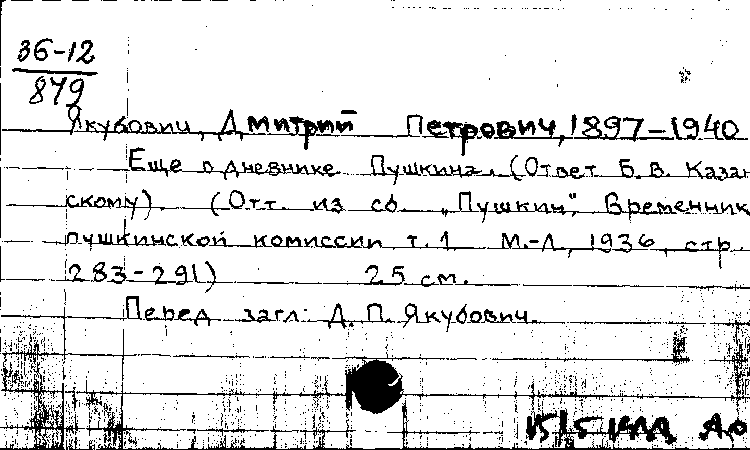 36-12
879
Якубович, Дмитрий Петрович, 1897-1940
Еще о дневнике Пушкина. (Ответ Б. В. Казан
скому). (Отт. из сб. „Пушкин". Временник
пушкинской комиссии, т. 1 М.-Л., 1936, стр.
283-291) 25 см.
Перед загл: Д. П. Якубович.